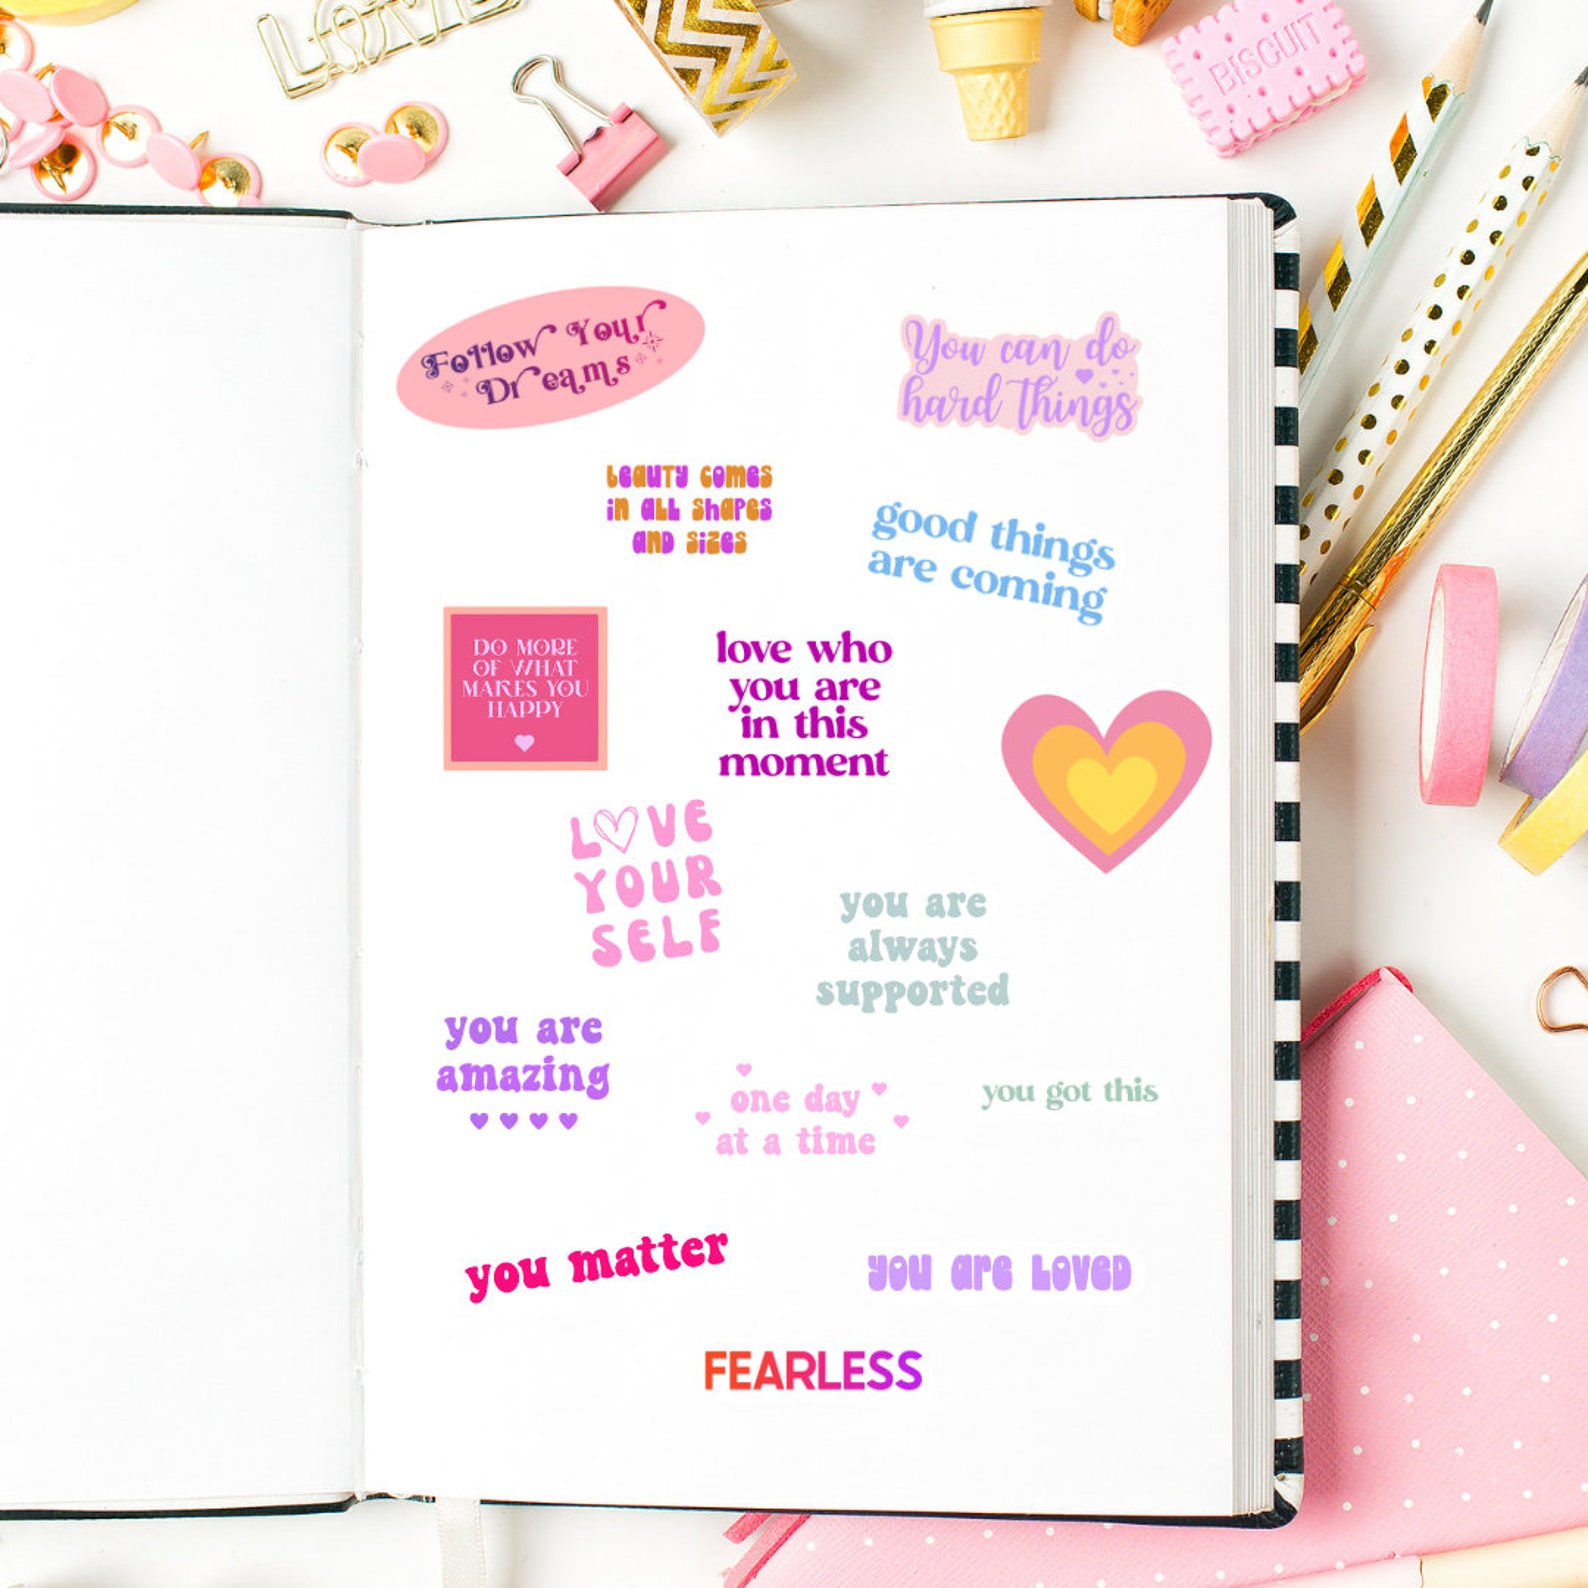 LOVE
BISCUIT
Follow Your
Dreams
You can do
hard things
beauty comes
in all shapes
and sizes
good things
are coming
DO MORE
OF WHAT
MAKES YOU
HAPPY
love who
you are
in this
moment
LOVE
YOUR
SELF
you are
always
supported
you are
amazing
one day
at a time
you got this
you matter
you are loved
FEARLESS